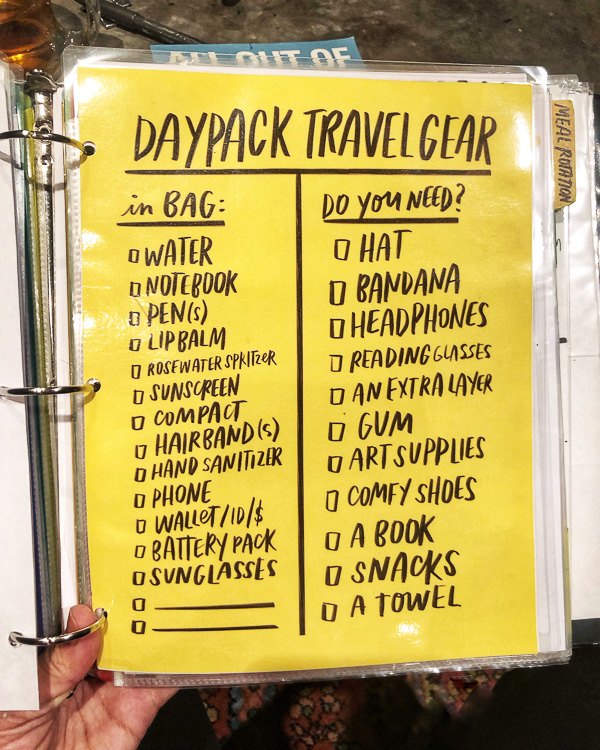 ALL OUT OF
MEAL ROTATION
DAYPACK TRAVEL GEAR
in BAG:
WATER
NOTEBOOK
PEN(S)
LIP BALM
ROSEWATER SPRITZER
SUNSCREEN
COMPACT
HAIRBAND(S)
HAND SANITIZER
PHONE
WALLET/ID/$
BATTERY PACK
SUNGLASSES
DO YOU NEED?
HAT
BANDANA
HEADPHONES
READING GLASSES
AN EXTRA LAYER
GUM
ART SUPPLIES
COMFY SHOES
A BOOK
SNACKS
A TOWEL